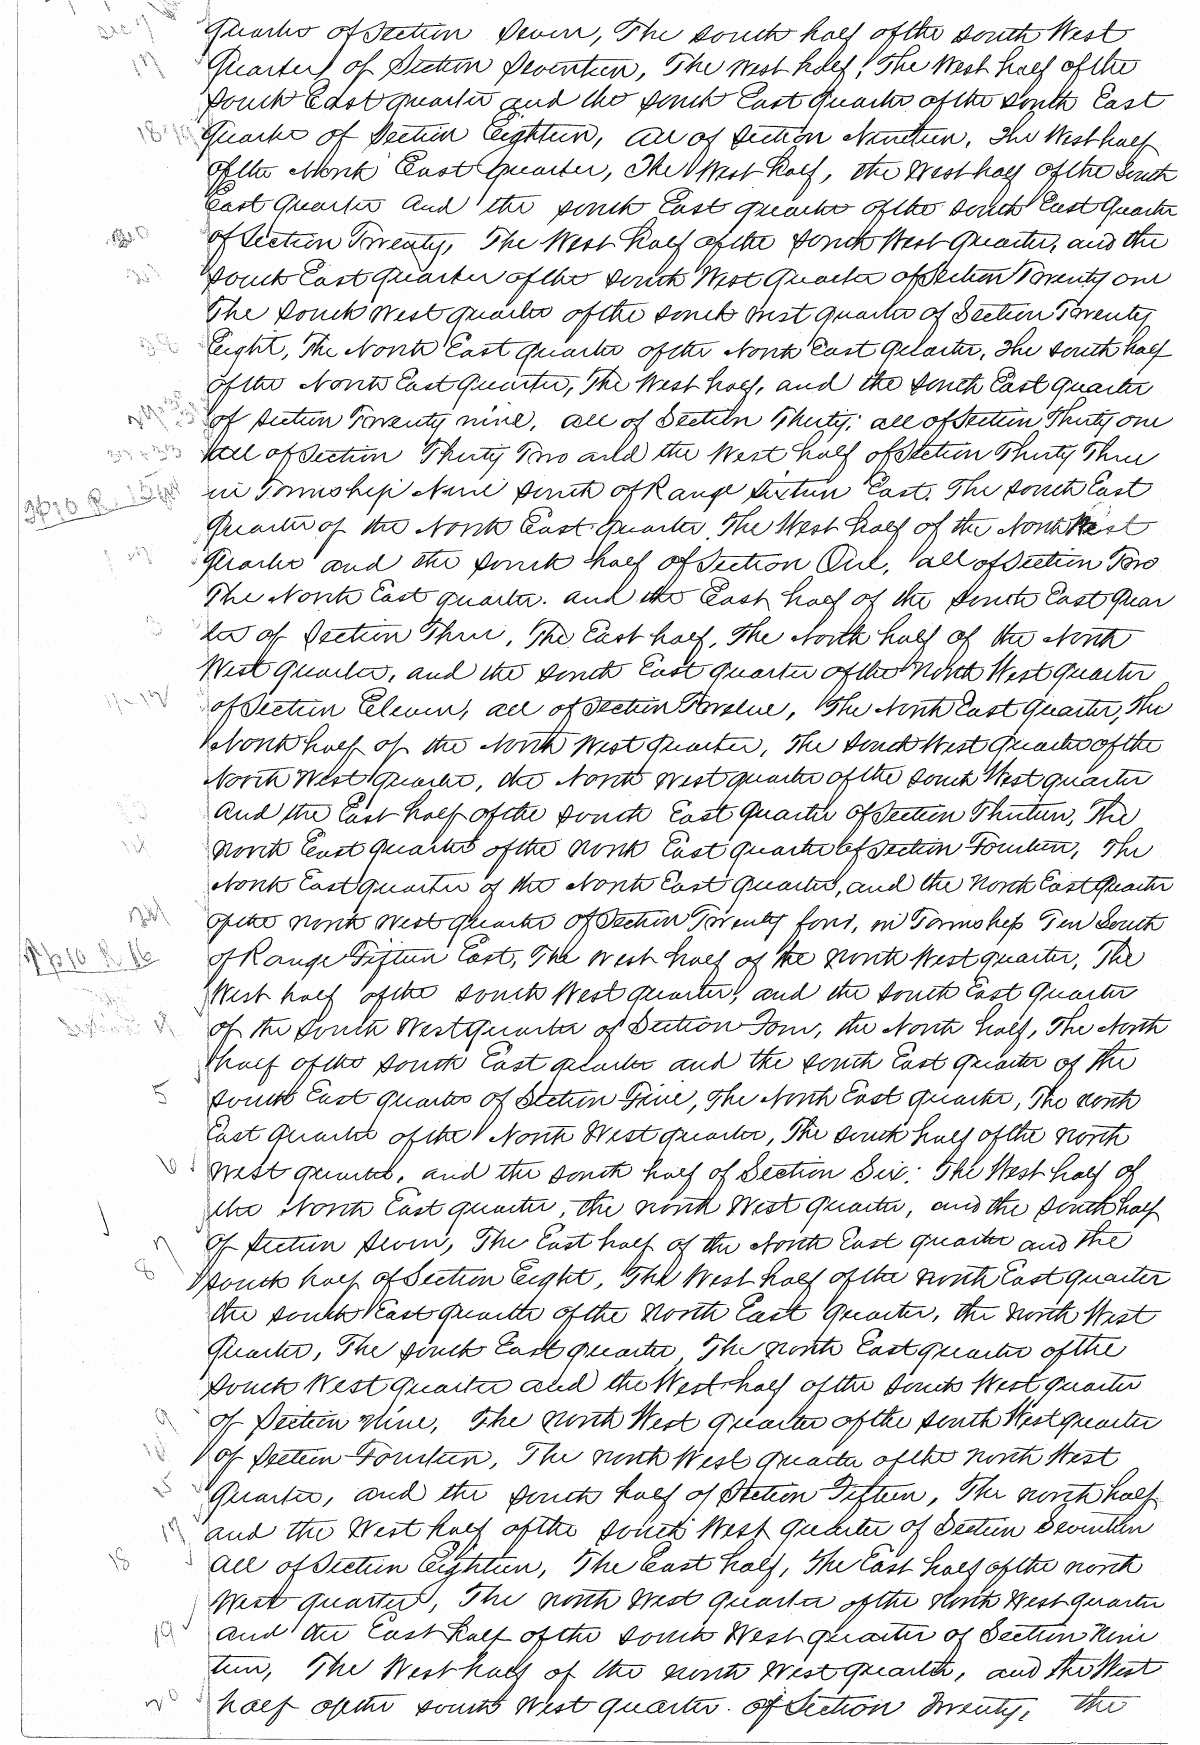 Sec 7
quarter of Section Seven, The South half of the South West
17
Quarter of Section Seventeen, The West half, The West half of the
South East quarter and the South East Quarter of the South East
18 19
Quarter of Section Eighteen, all of Section Nineteen, The West half
of the North East Quarter, The West half, the West half of the South
East Quarter and the South East quarter of the South East Quarter
20
of Section Twenty, The West half of the South West Quarter, and the
21
South East Quarter of the South West Quarter of Section Twenty one
The South West quarter of the South West quarter of Section Twenty
28
Eight, The North East quarter of the North East quarter, The South half
of the North East Quarter, The West half, and the South East quarter
29
of Section Twenty nine, all of Section Thirty, all of Section Thirty one
32 & 33
all of Section Thirty Two and the West half of Section Thirty Three
Tp 10 R. 15
in Township Nine South of Range Sixteen East. The South East
Quarter of the North East quarter The West half of the North West
1
Quarter and the South half of Section One, all of Section Two
The North East quarter. and the East half of the South East Quar
3
ter of Section Three, The East half, The North half of the North
West quarter, and the South East quarter of the North West quarter
11-12
of Section Eleven, all of Section Twelve, The North East Quarter, The
North half of the North West Quarter, The South West Quarter of the
North West quarter, the North West quarter of the South West quarter
13
and the East half of the South East Quarter of Section Thirteen, The
14
North East quarter of the North East quarter of Section Fourteen, The
North East quarter of the North East Quarter, and the North East Quarter
24
of the North West quarter of Section Twenty four, in Township Ten South
Tp 10 R 16
of Range Fifteen East, The West half of the North West quarter, The
West half of the South West quarter, and the South East quarter
Section 4
of the South West quarter of Section Four, the North half, The North
half of the South East quarter and the South East quarter of the
5
South East quarter of Section Five, The North East quarter, The North
East Quarter of the North West quarter, The South half of the North
6
West quarter, and the South half of Section Six; The West half of
the North East quarter, the North West quarter, and the South half
7
of Section Seven, The East half of the North East quarter and the
8
South half of Section Eight, The West half of the North East quarter
the South East quarter of the North East quarter, the North West
Quarter, The South East quarter, The North East quarter of the
South West quarter and the West half of the South West quarter
9
of Section Nine, The North West quarter of the South West quarter
14
of Section Fourteen, The North West quarter of the North West
15
Quarter, and the South half of Section Fifteen, The North half
17
and the West half of the South West quarter of Section Seventeen
18
all of Section Eighteen, The East half, The East half of the North
West quarter, The North West quarter of the North West quarter
19
and the East half of the South West quarter of Section Nine
teen, The West half of the North West quarter, and the West
20
half of the South West quarter. of Section Twenty, the